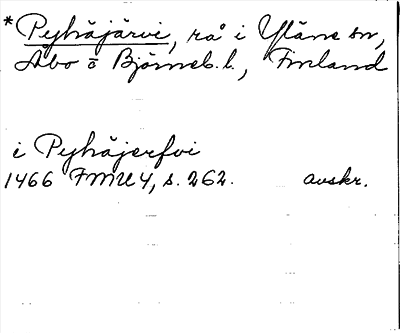 * Pyhäjärvi, rå i Yläne sn,
Åbo o Björneb. l., Finland
i Pyhäjerfvi
1466 FMU 4, s. 262. avskr.